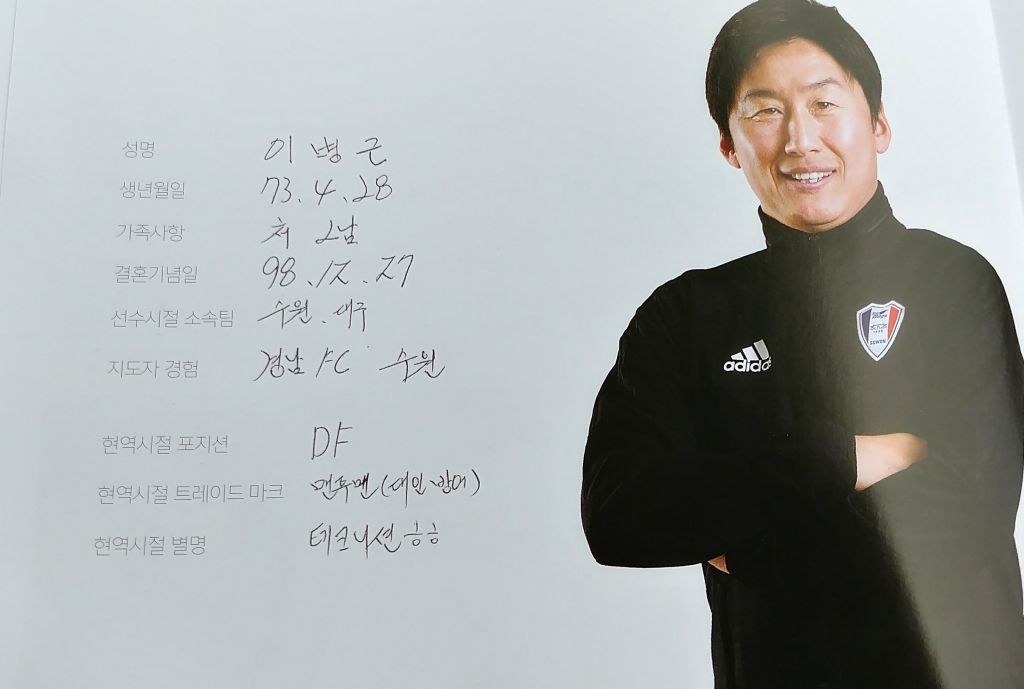 성명 이병근
생년월일 73.4.28
가족사항 처 2남
결혼기념일 98.12.27
선수시절 소속팀 수원.대구
지도자 경험 경남FC 수원
현역시절 포지션 DF
현역시절 트레이드 마크 맨투맨(대인.방어)
현역시절 별명 테크니션ㅎㅎ
adidas
SUWON